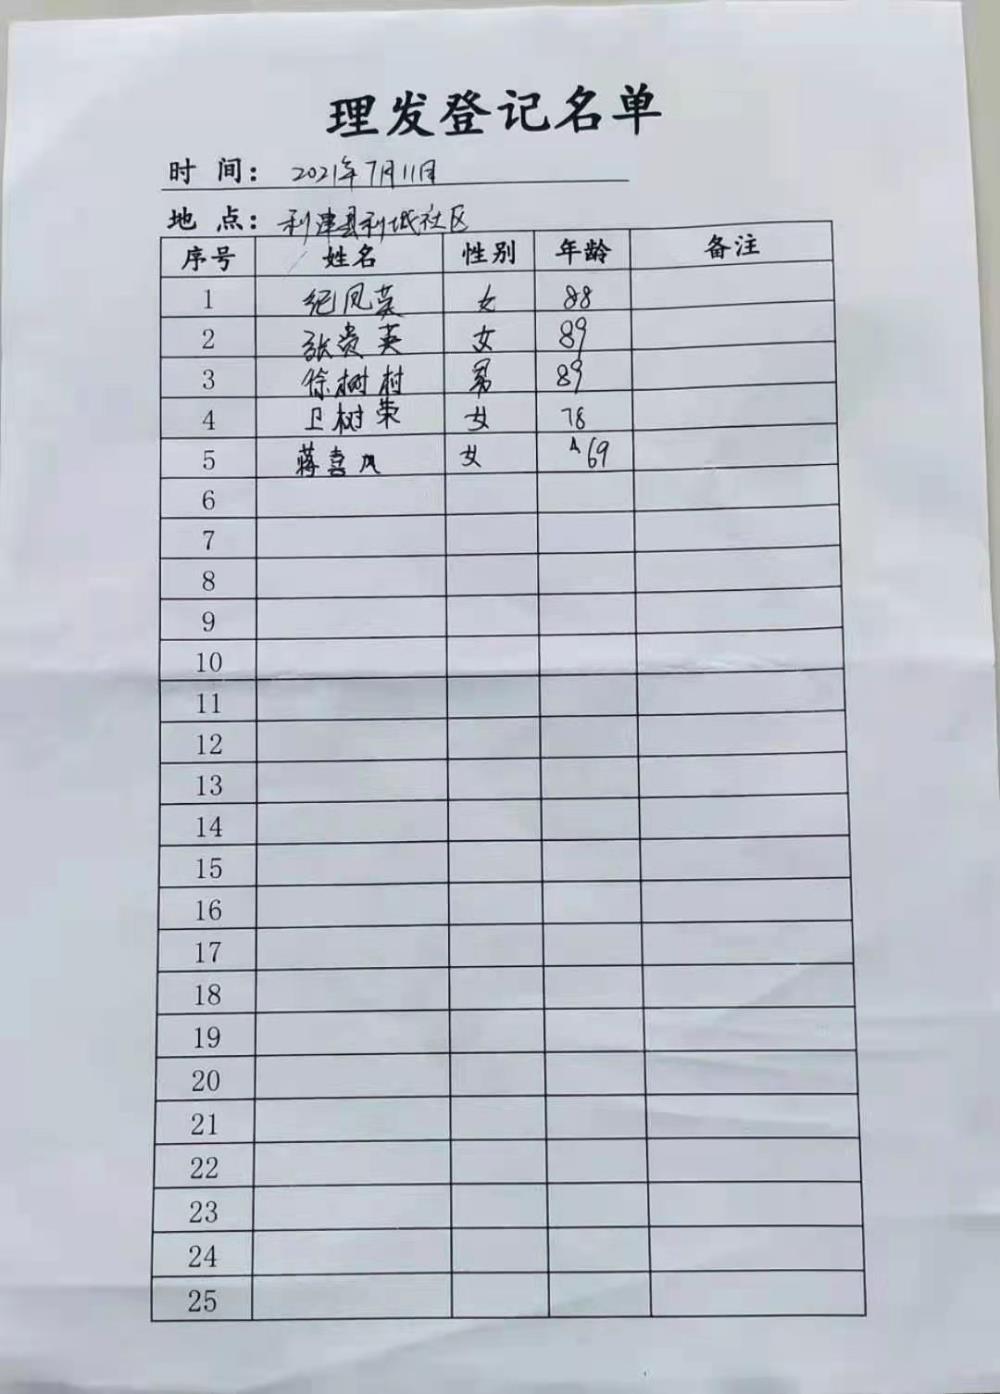 理发登记名单
时 间： 2021年7月11日
地 点： 利津县利城社区
序号 姓名 性别 年龄 备注
1 纪凤英 女 88
2 张贵英 女 89
3 徐树村 男 89
4 卫树荣 女 78
5 蒋喜凤 女 69
6
7
8
9
10
11
12
13
14
15
16
17
18
19
20
21
22
23
24
25